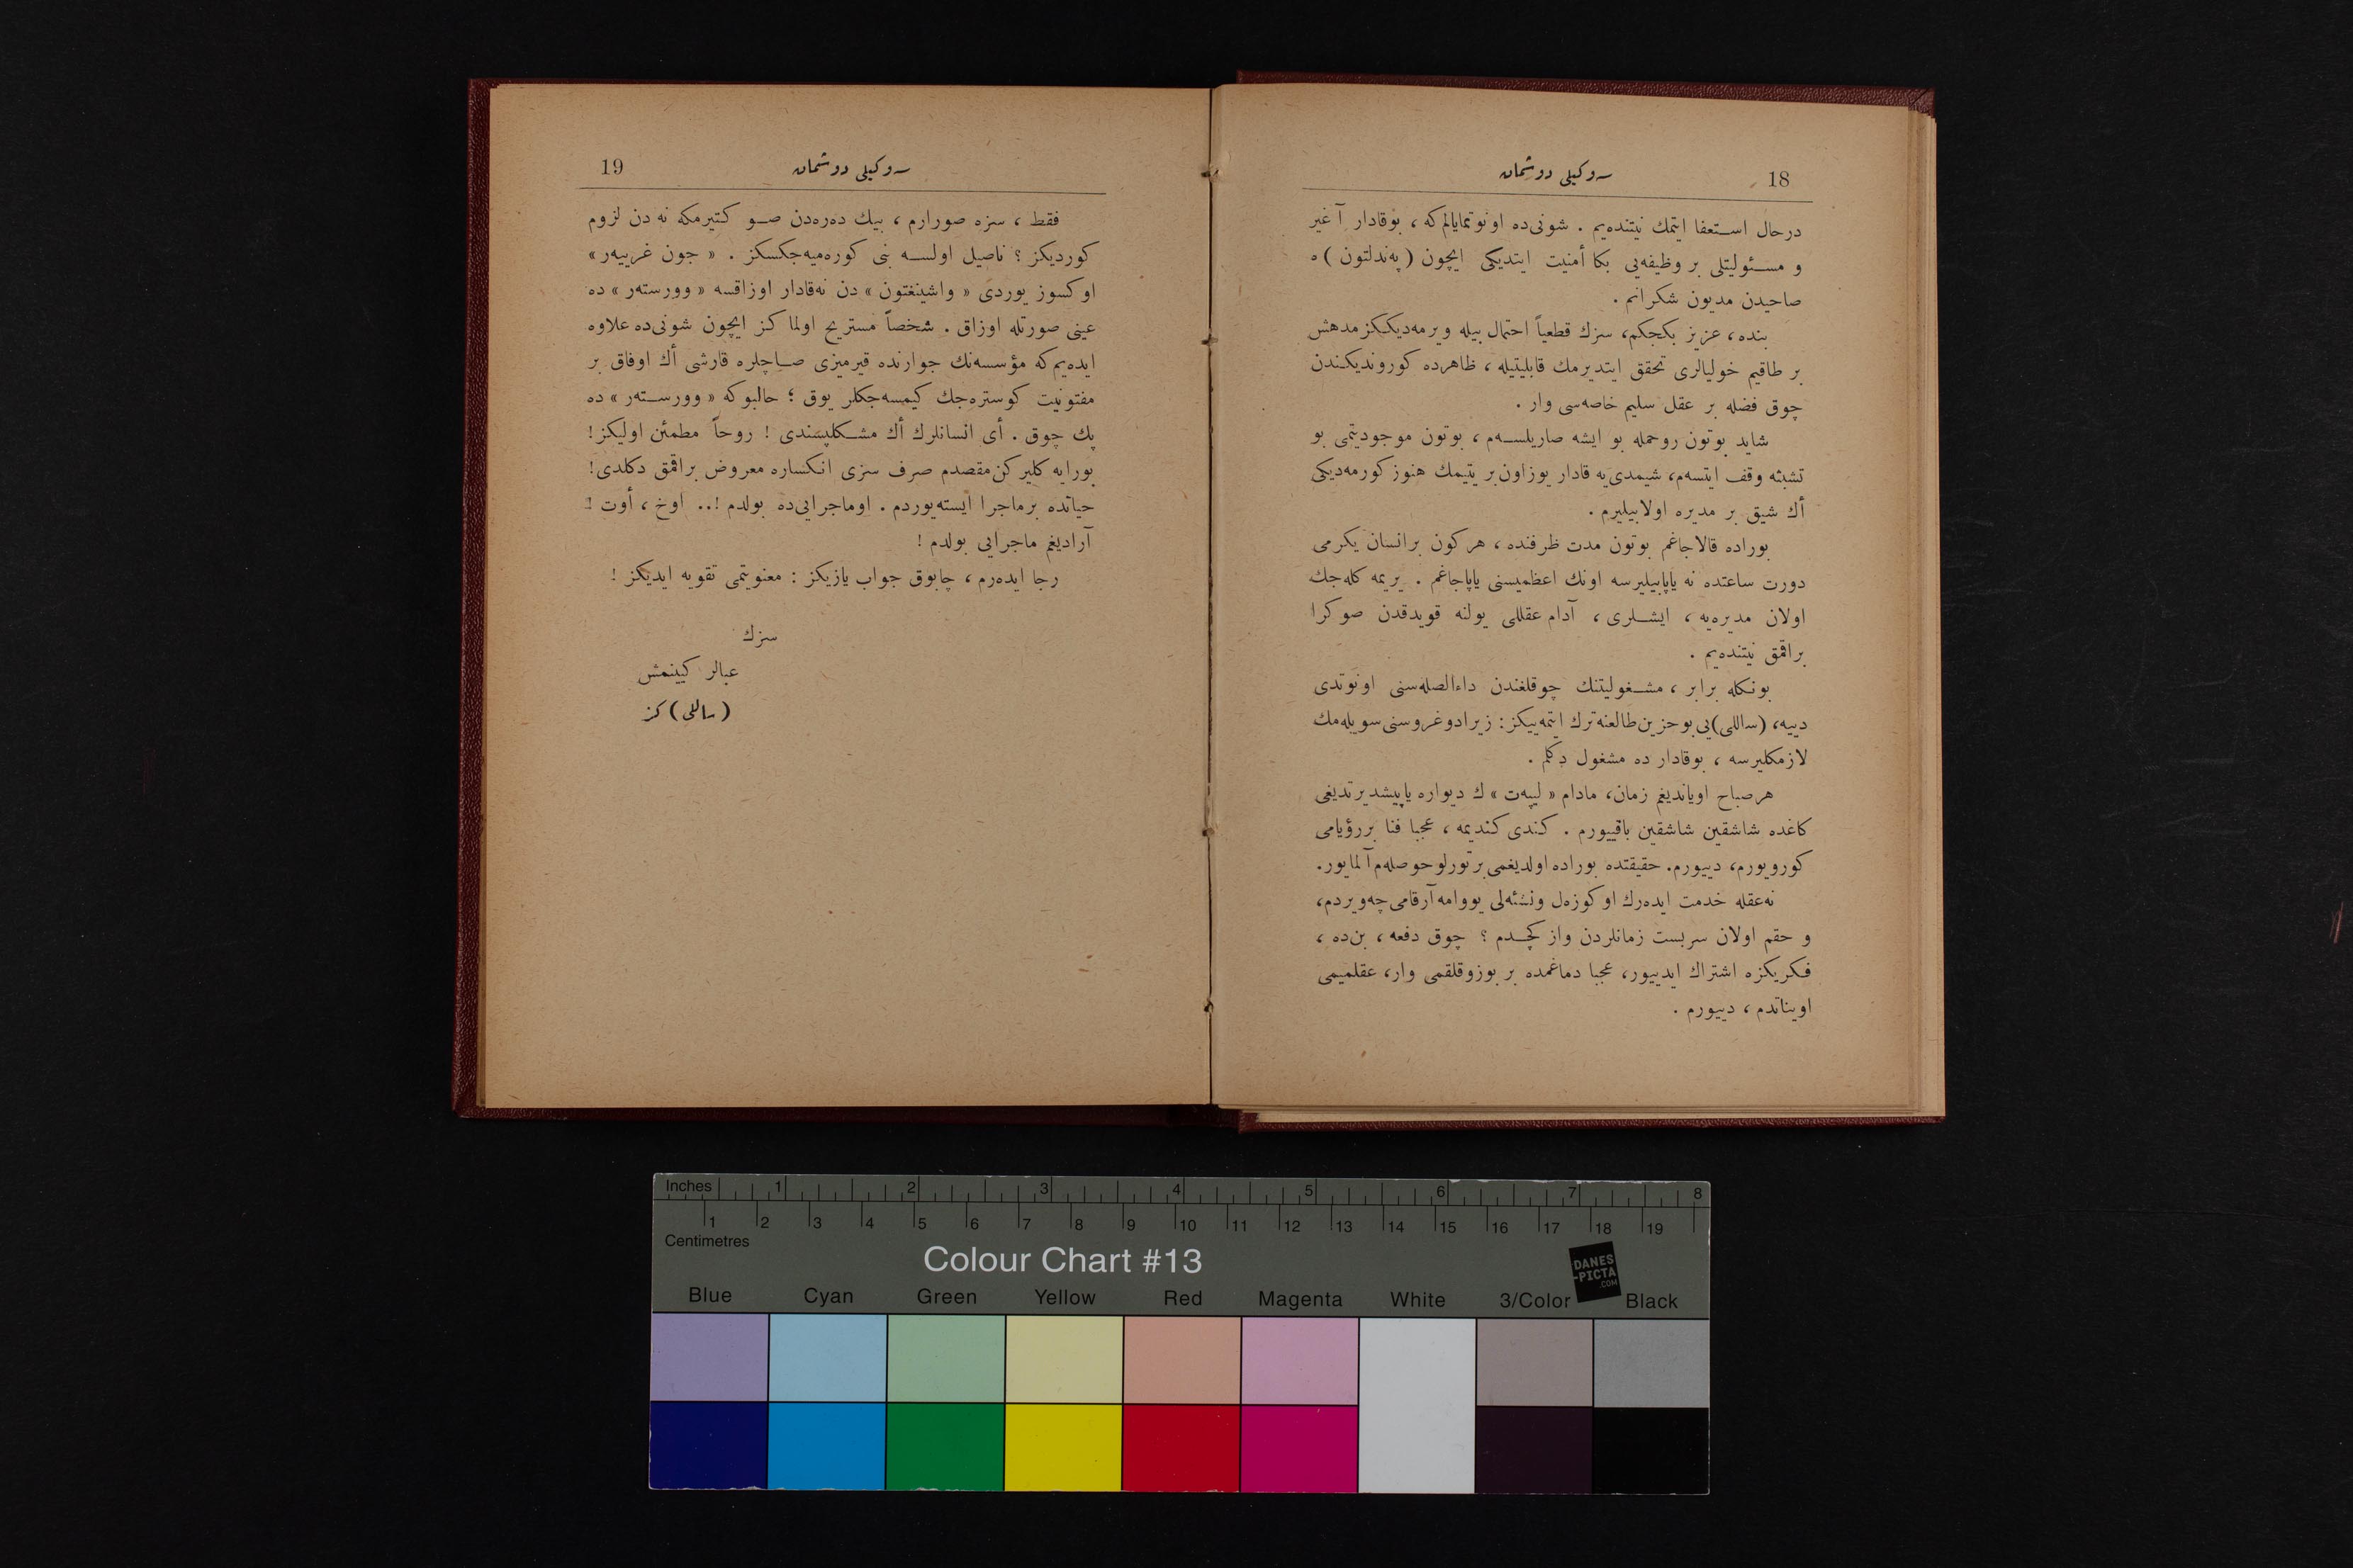 18
سەوكیلی دوشمان
درحال استعفا ایتمك نیتنده‌یم . شونی‌ده اونوتمایالم‌كه ، بوقادار آغیر
و مسئولیتلی بر وظیفه‌یی بكا أمنیت ایتدیكی ایچون (په‌ندلتون) ه
صاحیدن مدیون شكرانم .
بنده ، عزیز بكجكم، سزك قطعیاً احتمال بیله ویرمه‌دیككز مدهش
بر طاقیم خولیالری تحقق ایتدیرمك قابلیتیله ، ظاهرده كوروندیكندن
چوق فضله بر عقل سلیم خاصه‌سی وار .
شاید بوتون روحمله بو ایشه صاریلسه‌م ، بوتون موجودیتمی بو
تشبثه وقف ایتسه‌م، شیمدی‌یه قادار یوزاون بر یتیمك هنوز كورمه‌دیكی
أك شیق بر مدیره اولابیلیرم .
بوراده قالاجاغم بوتون مدت ظرفنده ، هركون برانسان یكرمی
دورت ساعتده نه یاپابیلیرسه اونك اعظمیسنی یاپاجاغم . یریمه كله‌جك
اولان مدیره‌یه ، ایشلری ، آدام عقللی یولنه قویدقدن صوكرا
براقمق نیتنده‌یم .
بونكله برابر ، مشغولیتنك چوقلغندن داءالصله‌سنی اونوتدی
دییه، (ساللی)یی بوحزین طالعنه ترك ایتمه‌ییكز: زیرا دوغروسنی سویله‌مك
لازمكلیرسه ، بوقادار ده مشغول دكلم .
هرصباح اویاندیغم زمان، مادام « لیپه‌ت » ك دیواره یاپیشدیرتدیغی
كاغده شاشقین شاشقین باقییورم . كندی كندیمه ، عجبا فنا بررؤیامی
كورویورم، دییورم. حقیقتده بوراده اولدیغمی برتورلو حوصله‌م آلمایور.
نه‌عقله خدمت ایده‌رك او كوزه‌ل ونشئه‌لی یووامه آرقامی چه‌ویردم،
و حقم اولان سربست زمانلردن واز كچدم ؟ چوق دفعه ، بن‌ده ،
فكریكزه اشتراك ایدییور، عجبا دماغمده بر بوزوقلقمی وار، عقلمیمی
اویناتدم ، دییورم .
19
سەوكیلی دوشمان
فقط ، سزه صورارم ، بیك ده‌ره‌دن صو كتیرمكه نه دن لزوم
كوردیكز ؟ ناصیل اولسه بنی كوره‌میه‌جكسكز . « جون غرییه‌ر »
اوكسوز یوردی « واشینغتون » دن نه‌قادار اوزاقسه « وورسته‌ر » ده
عینی صورتله اوزاق . شخصاً مستریح اولماكز ایچون شونی‌ده علاوه
ایده‌یم‌كه مؤسسه‌نك جوارنده قیرمیزی صاچلره قارشی أك اوفاق بر
مفتونیت كوستره‌جك كیمسه‌جكلر یوق ؛ حالبوكه « وورسته‌ر » ده
پك چوق . أی انسانلرك أك مشكلپسندی ! روحاً مطمئن اولیكز!
بورایه كلیركن مقصدم صرف سزی انكساره معروض براقمق دكلدی!
حیاتده برماجرا ایسته‌یوردم . اوماجرایی‌ده بولدم !.. اوخ ، أوت !
آرادیغم ماجرایی بولدم !
رجا ایده‌رم ، چابوق جواب یازیكز : معنویتمی تقویه ایدیكز !
سزك
عبالر كیینمش
(ساللی)كز
Inches 1 2 3 4 5 6 7 8
1 2 3 4 5 6 7 8 9 10 11 12 13 14 15 16 17 18 19
Centimetres
Colour Chart #13
DANES
-PICTA
.COM
Blue Cyan Green Yellow Red Magenta White 3/Color Black